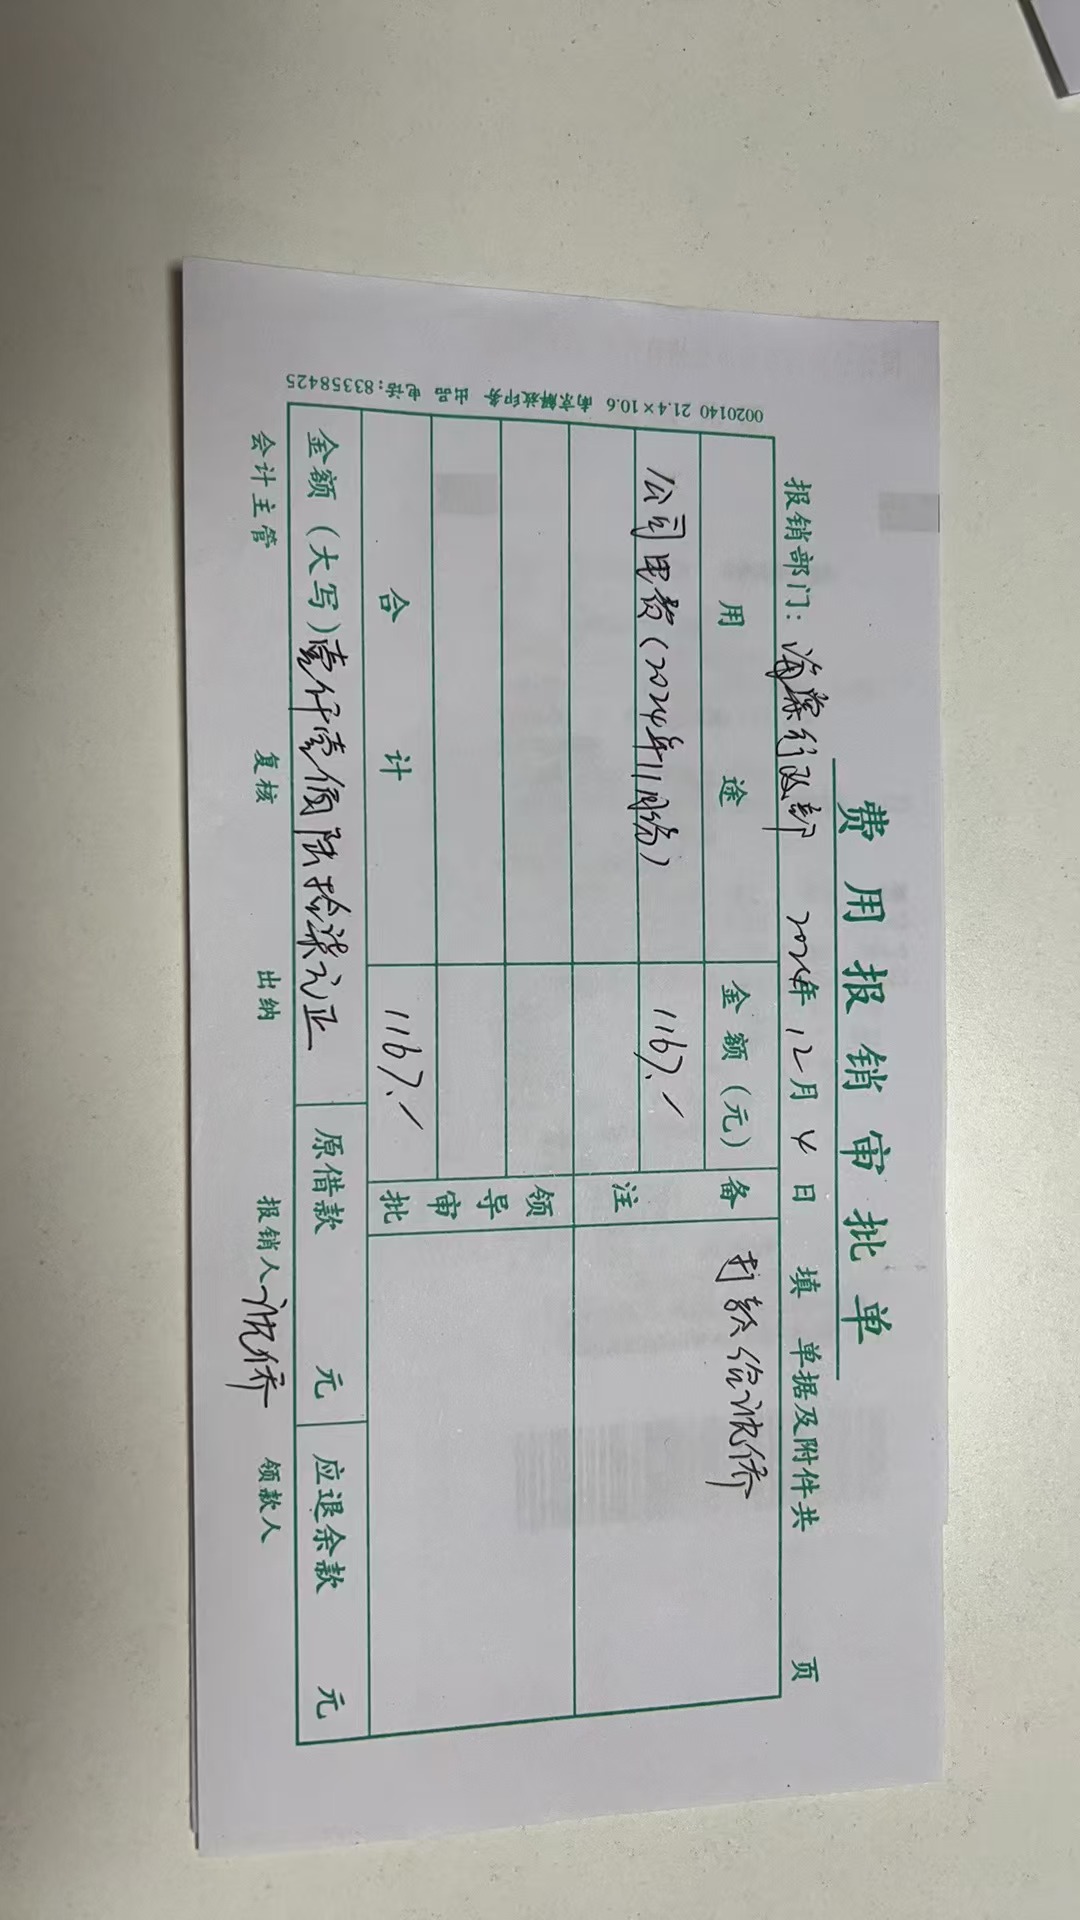 费用报销审批单
报销部门：海棠行政部 2024年12月4日 填 单据及附件共 页
用途 金额（元） 备注 打款给沈侨
公司电费（2024年11月份） 1167.-
领导审批
合计 1167.-
金额（大写）壹仟壹佰陆拾柒元正 原借款 元 应退余款 元
会计主管 复核 出纳 报销人 沈侨 领款人
0020140 21.4×10.6 南京解放印务 出品 电话:83358425